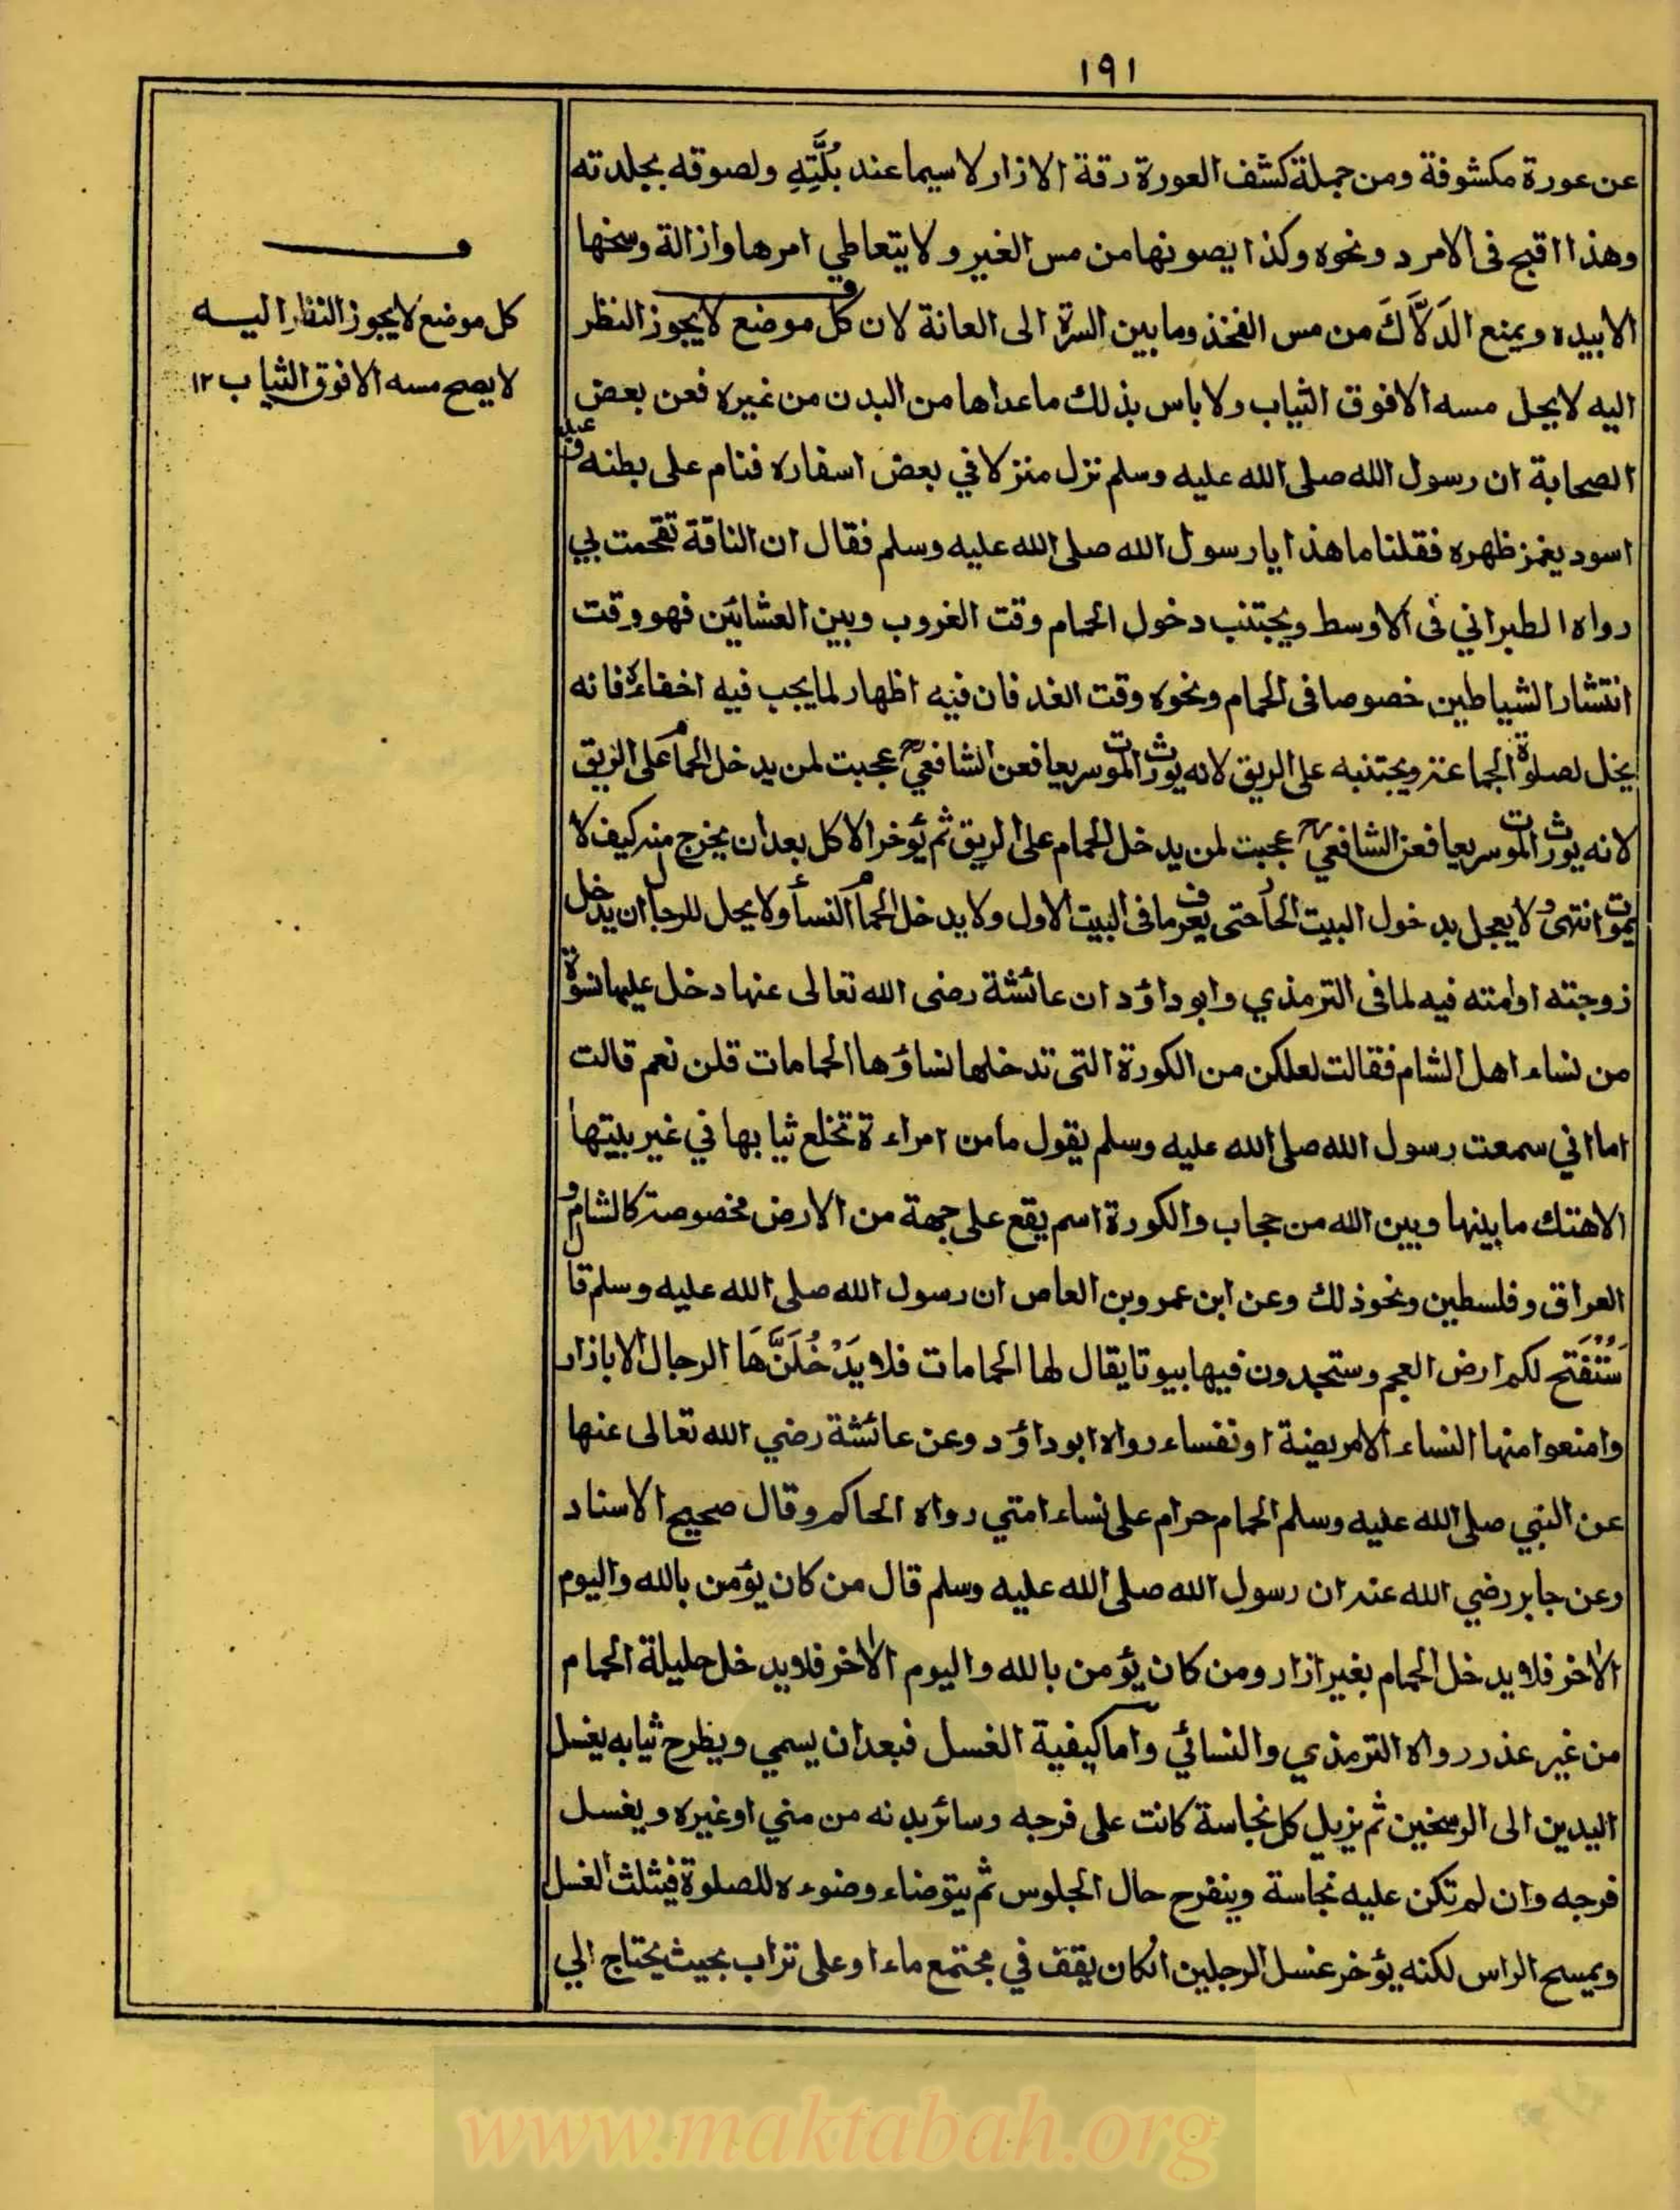 ١٩١
عن عورة مكشوفة ومن جملة كشف العورة رقة الازار لا سيما عند بُلَّتِهِ ولصوقه بجلدته
وهذا اقبح فى الامرد ونحوه وكذا يصونها من مس الغير ولا يتعاطي امرها وازالة وسخها
الابيده ويمنع الدَلاَّكَ من مس الفخذ وما بين السرة الى العانة لان كل موضع لا يجوز النظر
اليه لا يحل مسه الا فوق الثياب ولا باس بذلك ما عداها من البدن من غيره فعن بعض
الصحابة ان رسول الله صلى الله عليه وسلم نزل منزلا في بعض اسفاره فنام على بطنه وعبد
اسود يغمز ظهره فقلنا ما هذا يا رسول الله صلى الله عليه وسلم فقال ان الناقة تقحمت بي
رواه الطبراني فى الاوسط ويجتنب دخول الحمام وقت الغروب وبين العشائين فهو وقت
انتشار الشياطين خصوصا فى الحمام ونحوه وقت الغد فان فيه اظهار لما يجب فيه اخفاءه فانه
يخل لصلوة الجماعة ويجتنبه على الريق لانه يورث الموت سريعا فعن الشافعي رح عجبت لمن يدخل الحمام على الريق
لانه يورث الموت سريعا فعن الشافعي رح عجبت لمن يدخل الحمام على الريق ثم يؤخر الاكل بعد ان يخرج منه كيف لا
يموت انتهى ولا يعجل بدخول البيت الحار حتى يعرف ما فى البيت الاول ولا يدخل الحمام النساء ولا يحل للرجال ان يدخل
زوجته او امته فيه لما فى الترمذي وابو داؤد ان عائشة رضى الله تعالى عنها دخل عليها نسوة
من نساء اهل الشام فقالت لعلكن من الكورة التى تدخلها نساؤها الحمامات قلن نعم قالت
اما اني سمعت رسول الله صلى الله عليه وسلم يقول ما من امراءة تخلع ثيابها في غير بيتها
الا هتك ما بينها وبين الله من حجاب والكورة اسم يقع على جهة من الارض مخصوصة كالشام و
العراق وفلسطين ونحو ذلك وعن ابن عمرو بن العاص ان رسول الله صلى الله عليه وسلم قال
سَتُفْتَح لكم ارض العجم وستجدون فيها بيوتا يقال لها الحمامات فلا يَدْخُلَنَّهَا الرجال الا بازار
وامنعوا منها النساء الا مريضة او نفساء رواه ابو داؤد وعن عائشة رضي الله تعالى عنها
عن النبي صلى الله عليه وسلم الحمام حرام على نساء امتي رواه الحاكم وقال صحيح الاسناد
وعن جابر رضي الله عنه ان رسول الله صلى الله عليه وسلم قال من كان يؤمن بالله واليوم
الاخر فلا يدخل الحمام بغير ازار ومن كان يؤمن بالله واليوم الاخر فلا يدخل حليلة الحمام
من غير عذر رواه الترمذي والنسائي واما كيفية الغسل فبعد ان يسمي ويطرح ثيابه يغسل
اليدين الى الرسخين ثم يزيل كل نجاسة كانت على فرجه وسائر بدنه من مني او غيره ويغسل
فرجه وان لم تكن عليه نجاسة وينفرج حال الجلوس ثم يتوضاء وضوءه للصلوة فيثلث الغسل
ويمسح الراس لكنه يؤخر غسل الرجلين انكان يقف في مجتمع ماء او على تراب بحيث يحتاج الي
ف
كل موضع لا يجوز النظر اليه
لا يصح مسه الا فوق الثياب ١٢
www.maktabah.org